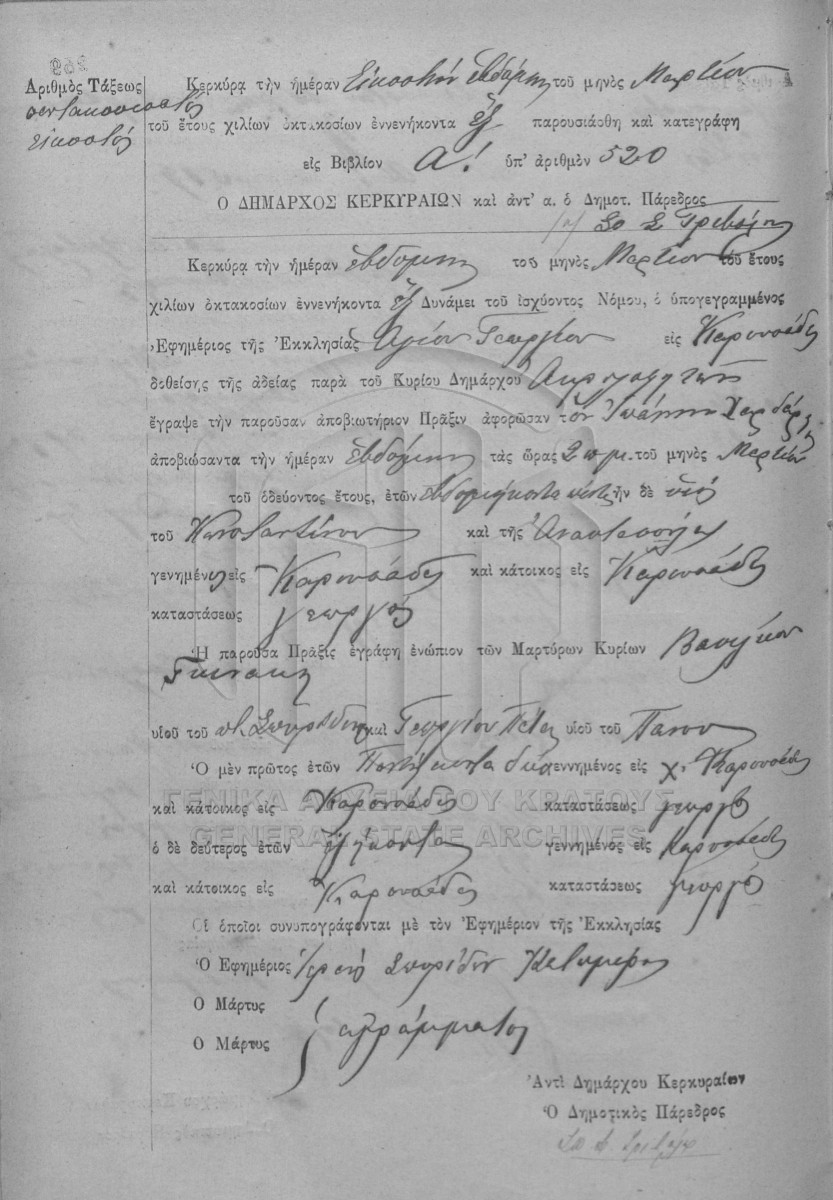 Ἀριθμὸς Τάξεως
πεντακοσιοστὸς
εἰκοστός
Κερκύρᾳ τὴν ἡμέραν Εἰκοστὴν ἑβδόμην τοῦ μηνὸς Μαρτίου
τοῦ ἔτους χιλίων ὀκτακοσίων ἐννενήκοντα ἕξ παρουσιάσθη καὶ κατεγράφη
εἰς Βιβλίον Α! ὑπ' ἀριθμὸν 520
Ο ΔΗΜΑΡΧΟΣ ΚΕΡΚΥΡΑΙΩΝ καὶ ἀντ' α. ὁ Δημοτ. Πάρεδρος
Κερκύρᾳ τὴν ἡμέραν ἑβδόμην τοῦ μηνὸς Μαρτίου τοῦ ἔτους
χιλίων ὀκτακοσίων ἐννενήκοντα ἕξ Δυνάμει τοῦ ἰσχύοντος Νόμου, ὁ ὑπογεγραμμένος
Ἐφημέριος τῆς Ἐκκλησίας Ἁγίου Γεωργίου εἰς Καρουσάδες
δοθείσης τῆς ἀδείας παρὰ τοῦ Κυρίου Δημάρχου
ἔγραψε τὴν παροῦσαν ἀποβιωτήριον Πρᾶξιν ἀφορῶσαν τὸν Ἰωάννην
ἀποβιώσαντα τὴν ἡμέραν ἑβδόμην τὰς ὥρας 2 π.μ. τοῦ μηνὸς Μαρτίου
τοῦ ὁδεύοντος ἔτους, ἐτῶν ἑβδομήκοντα πέντε ἦν δὲ υἱός
τοῦ Κωνσταντίνου καὶ τῆς Ἀναστασούλας
γενημένος εἰς Καρουσάδες καὶ κάτοικος εἰς Καρουσάδες
καταστάσεως γεωργός
Ἡ παροῦσα Πρᾶξις ἐγράφη ἐνώπιον τῶν Μαρτύρων Κυρίων Βασιλείου
υἱοῦ τοῦ Σπυρίδωνος καὶ Γεωργίου υἱοῦ τοῦ Πάνου
Ὁ μὲν πρῶτος ἐτῶν Πεντήκοντα δύο γεννημένος εἰς χ. Καρουσάδες
καὶ κάτοικος εἰς Καρουσάδες καταστάσεως γεωργός
ὁ δὲ δεύτερος ἐτῶν ἑξήκοντα γεννημένος εἰς Καρουσάδες
καὶ κάτοικος εἰς Καρουσάδες καταστάσεως γεωργός
Οἱ ὁποῖοι συνυπογράφονται μὲ τὸν Ἐφημέριον τῆς Ἐκκλησίας
Ὁ Ἐφημέριος Ἱερεὺς Σπυρίδων
Ο Μάρτυς
Ο Μάρτυς
ἀγράμματοι
Ἀντὶ Δημάρχου Κερκυραίων
Ὁ Δημοτικὸς Πάρεδρος
ΓΕΝΙΚΑ ΑΡΧΕΙΑ ΤΟΥ ΚΡΑΤΟΥΣ
GENERAL STATE ARCHIVES